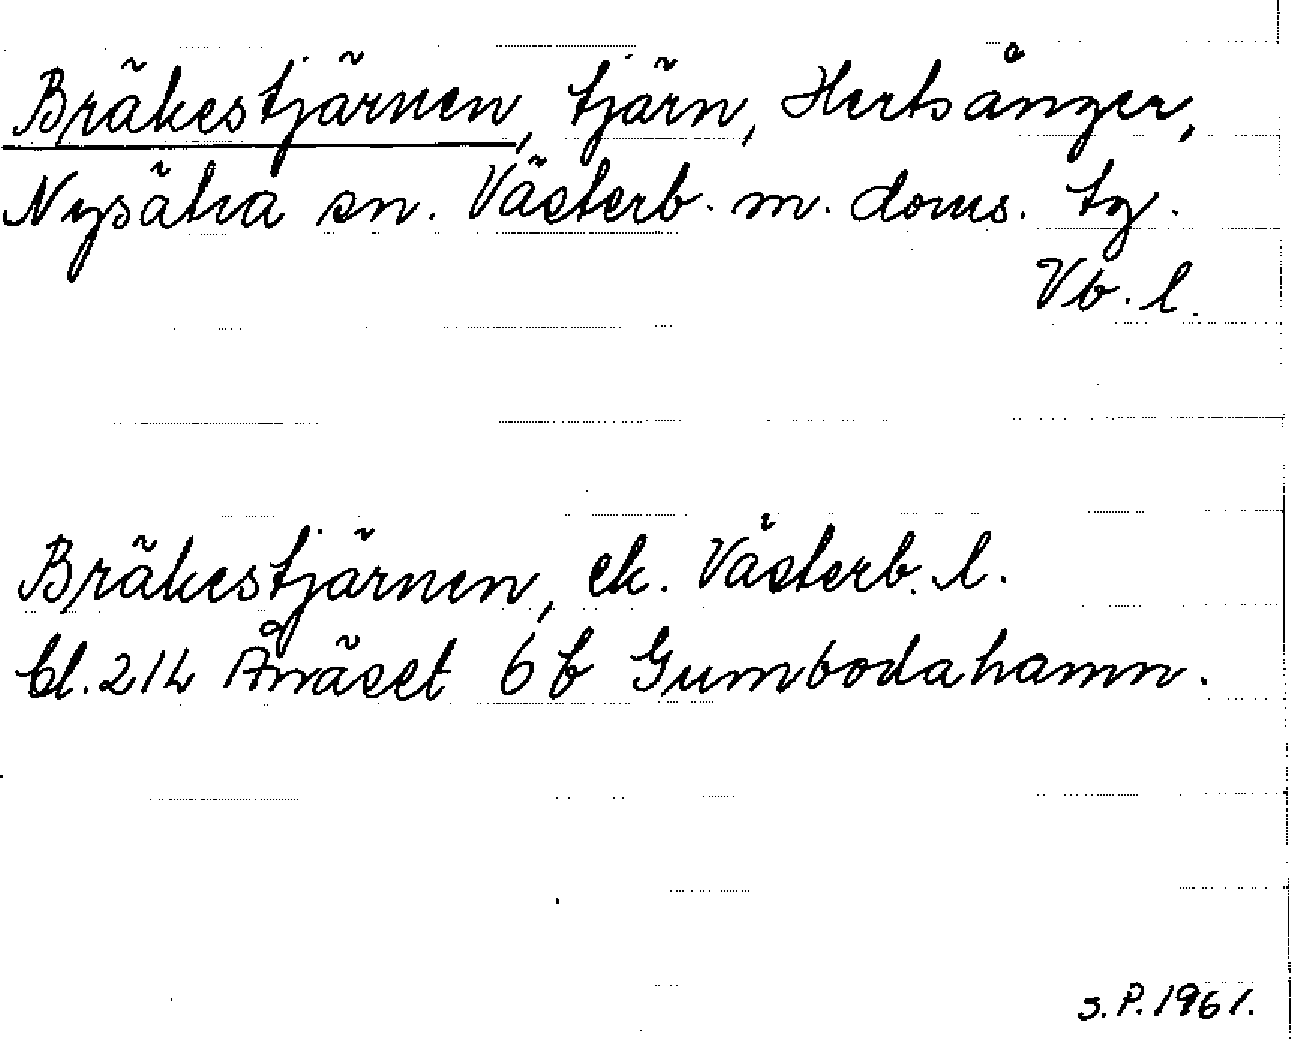 Bräkestjärnen, tjärn, Hertsånger,
Nysätra sn. Västerb. m. doms. tg.
Vb. l.
Bräkestjärnen, ek. Västerb. l.
bl. 214 Ånäset 6 b Gumbodahamn.
S. P. 1961.